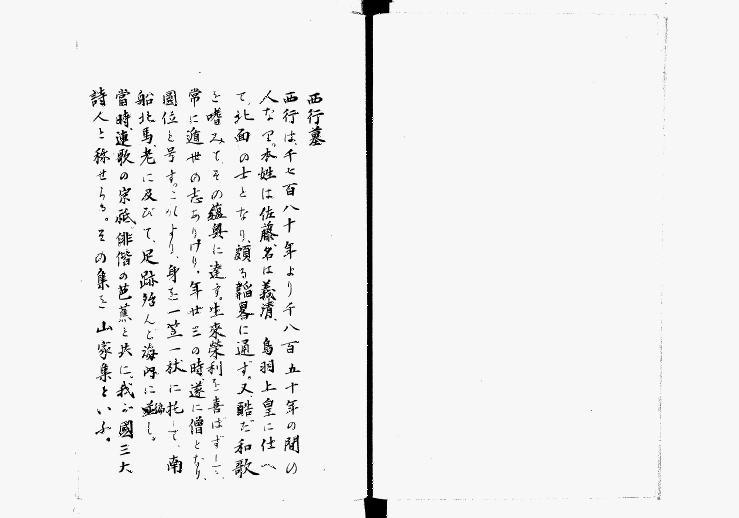 西行墓
西行は、千七百八十年より千八百五十年の間の
人なり。本姓は佐藤、名は義清、鳥羽上皇に仕へ
て、北面の士となり、頗る韜畧に通ず。又、酷だ和歌
を嗜みて、その蘊奥に達す。生来榮利を喜ばずして、
常に遁世の志ありけり。年廿三の時、遂に僧となり、
圓位と号す。これより、身を一笠一狀に托して、南
船北馬、老に及びて、足跡殆んど海内に遍し。
當時、連歌の宗祇、俳偕の芭蕉と共に、我が國三大
詩人と称せらる。その集を山家集といふ。